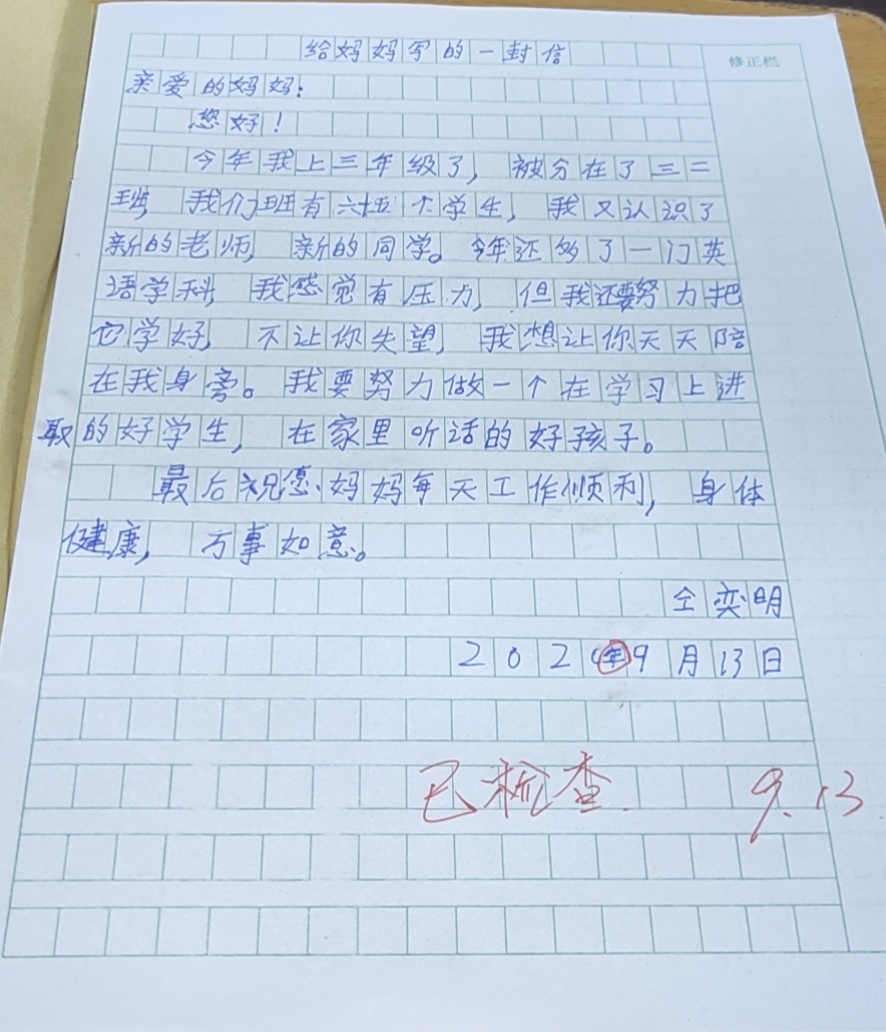 给妈妈写的一封信
修正栏
亲爱的妈妈:
您好!
今年我上三年级了,被分在了三二
班,我们班有六十五个学生,我又认识了
新的老师,新的同学。今年还多了一门英
语学科,我感觉有压力,但我还要努力把
它学好,不让你失望,我想让你天天陪
在我身旁。我要努力做一个在学习上进
取的好学生,在家里听话的好孩子。
最后祝您妈妈每天工作顺利,身体
健康,万事如意。
仝奕明
202 年9月13日
已检查 9.13